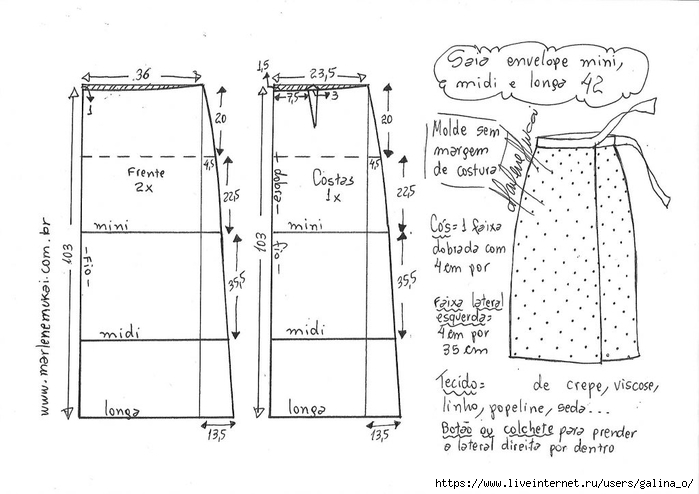 36
1
20
4,5
Frente
2x
22,5
mini
103
-Fio-
35,5
midi
longa
13,5
www.marlenemukai.com.br
1,5
23,5
7,5
3
20
4,5
dobra
Costas
1x
22,5
mini
103
fio
35,5
midi
longa
13,5
Saia envelope mini,
midi e longa 42
Molde sem
margem
de costura
Marlene Mukai
Cós= 1 faixa
dobrada com
4cm por
Faixa lateral
esquerda=
4cm por
35cm
Tecido= de crepe, viscose,
linho, popeline, seda...
Botão ou colchete para prender
a lateral direita por dentro
https://www.liveinternet.ru/users/galina_o/